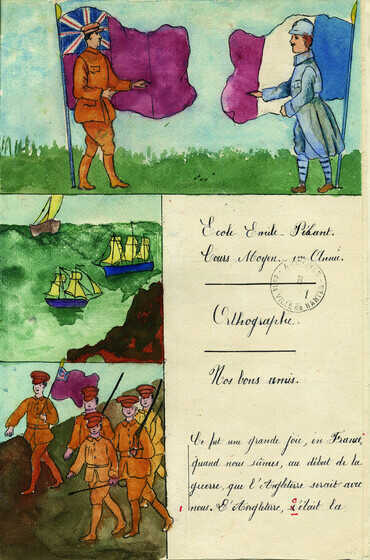 Ecole Emile-Péhant.
Cours Moyen. 1ère Année.
VILLE DE NANTES
Orthographe
Nos bons amis.
Ce fut une grande joie, en France,
quand nous sûmes, au début de la
guerre, que l'Angleterre serait avec
nous. L'Angleterre, c'était la